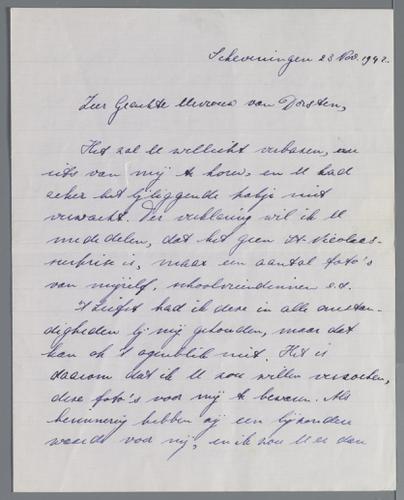 Scheveningen 23 Nov. 1942.
Zeer Geachte Mevrouw van Dorsten,
Het zal U wellicht verbazen, eens
iets van mij te horen, en U had
zeker het bijliggende pakje niet
verwacht. Ter verklaring wil ik U
mededelen, dat het geen St. Nicolaas-
surprise is, maar een aantal foto's
van mijzelf, schoolvriendinnen e.d.
't Liefst had ik deze in alle omstan-
digheden bij mij gehouden, maar dat
kan op 't ogenblik niet. Het is
daarom dat ik U zou willen verzoeken,
deze foto's voor mij te bewaren. Als
herinnering hebben zij een bijzondere
waarde voor mij, en ik zou U er dan